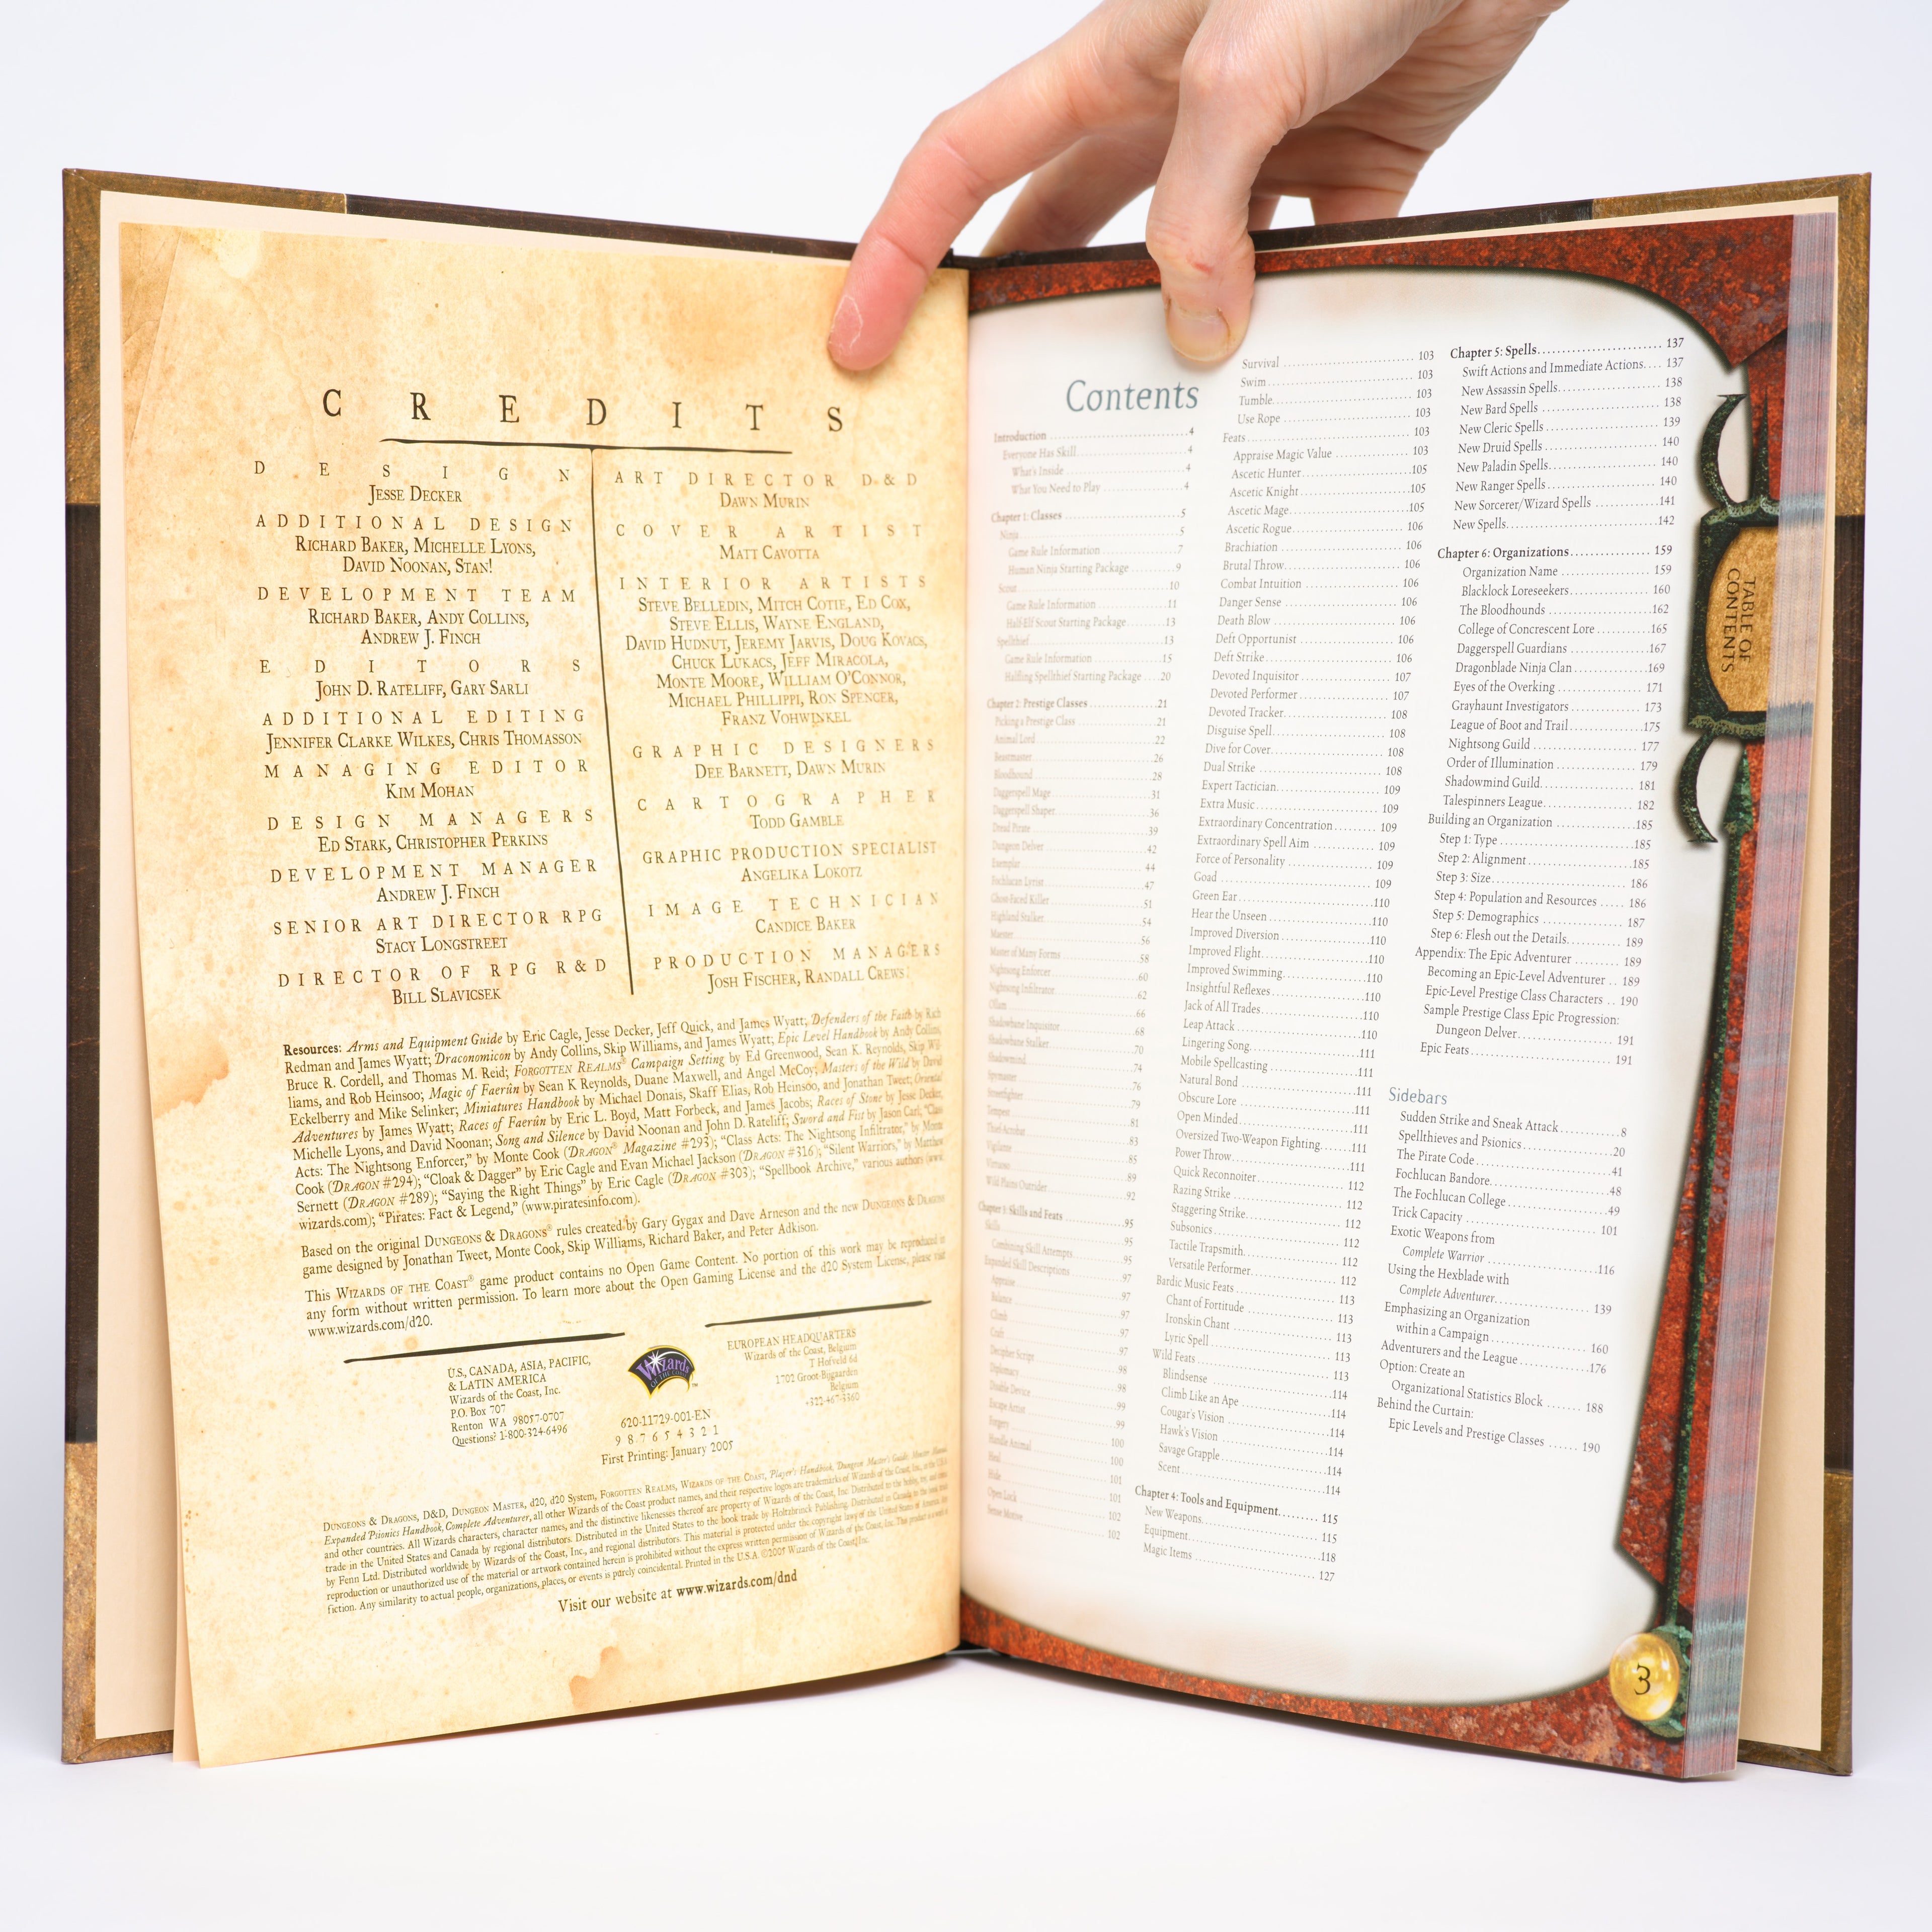 CREDITS
DESIGN
JESSE DECKER
ADDITIONAL DESIGN
RICHARD BAKER, MICHELLE LYONS,
DAVID NOONAN, STAN!
DEVELOPMENT TEAM
RICHARD BAKER, ANDY COLLINS,
ANDREW J. FINCH
EDITORS
JOHN D. RATELIFF, GARY SARLI
ADDITIONAL EDITING
JENNIFER CLARKE WILKES, CHRIS THOMASSON
MANAGING EDITOR
KIM MOHAN
DESIGN MANAGERS
ED STARK, CHRISTOPHER PERKINS
DEVELOPMENT MANAGER
ANDREW J. FINCH
SENIOR ART DIRECTOR RPG
STACY LONGSTREET
DIRECTOR OF RPG R&D
BILL SLAVICSEK
ART DIRECTOR D&D
DAWN MURIN
COVER ARTIST
MATT CAVOTTA
INTERIOR ARTISTS
STEVE BELLEDIN, MITCH COTIE, ED COX,
STEVE ELLIS, WAYNE ENGLAND,
DAVID HUDNUT, JEREMY JARVIS, DOUG KOVACS,
CHUCK LUKACS, JEFF MIRACOLA,
MONTE MOORE, WILLIAM O'CONNOR,
MICHAEL PHILLIPPI, RON SPENCER,
FRANZ VOHWINKEL
GRAPHIC DESIGNERS
DEE BARNETT, DAWN MURIN
CARTOGRAPHER
TODD GAMBLE
GRAPHIC PRODUCTION SPECIALIST
ANGELIKA LOKOTZ
IMAGE TECHNICIAN
CANDICE BAKER
PRODUCTION MANAGERS
JOSH FISCHER, RANDALL CREWS
Resources: Arms and Equipment Guide by Eric Cagle, Jesse Decker, Jeff Quick, and James Wyatt; Defenders of the Faith by Rich
Redman and James Wyatt; Draconomicon by Andy Collins, Skip Williams, and James Wyatt; Epic Level Handbook by Andy Collins,
Bruce R. Cordell, and Thomas M. Reid; FORGOTTEN REALMS® Campaign Setting by Ed Greenwood, Sean K. Reynolds, Skip Wil-
liams, and Rob Heinsoo; Magic of Faerûn by Sean K Reynolds, Duane Maxwell, and Angel McCoy; Masters of the Wild by David
Eckelberry and Mike Selinker; Miniatures Handbook by Michael Donais, Skaff Elias, Rob Heinsoo, and Jonathan Tweet; Oriental
Adventures by James Wyatt; Races of Faerûn by Eric L. Boyd, Matt Forbeck, and James Jacobs; Races of Stone by Jesse Decker,
Michelle Lyons, and David Noonan; Song and Silence by David Noonan and John D. Rateliff; Sword and Fist by Jason Carl; "Class
Acts: The Nightsong Enforcer," by Monte Cook (DRAGON® Magazine #293); "Class Acts: The Nightsong Infiltrator," by Monte
Cook (DRAGON #294); "Cloak & Dagger" by Eric Cagle and Evan Michael Jackson (DRAGON #316); "Silent Warriors," by Matthew
Sernett (DRAGON #289); "Saying the Right Things" by Eric Cagle (DRAGON #303); "Spellbook Archive," various authors (www.
wizards.com); "Pirates: Fact & Legend," (www.piratesinfo.com).
Based on the original DUNGEONS & DRAGONS® rules created by Gary Gygax and Dave Arneson and the new DUNGEONS & DRAGONS
game designed by Jonathan Tweet, Monte Cook, Skip Williams, Richard Baker, and Peter Adkison.
This WIZARDS OF THE COAST® game product contains no Open Game Content. No portion of this work may be reproduced in
any form without written permission. To learn more about the Open Gaming License and the d20 System License, please visit
www.wizards.com/d20.
U.S., CANADA, ASIA, PACIFIC,
& LATIN AMERICA
Wizards of the Coast, Inc.
P.O. Box 707
Renton WA 98057-0707
Questions? 1-800-324-6496
Wizards
OF THE COAST
™
620-11729-001-EN
9 8 7 6 5 4 3 2 1
First Printing: January 2005
EUROPEAN HEADQUARTERS
Wizards of the Coast, Belgium
T Hofveld 6d
1702 Groot-Bijgaarden
Belgium
+322-467-3360
DUNGEONS & DRAGONS, D&D, DUNGEON MASTER, d20, d20 System, FORGOTTEN REALMS, WIZARDS OF THE COAST, Player's Handbook, Dungeon Master's Guide, Monster Manual,
Expanded Psionics Handbook, Complete Adventurer, all other Wizards of the Coast product names, and their respective logos are trademarks of Wizards of the Coast, Inc., in the U.S.A.
and other countries. All Wizards characters, character names, and the distinctive likenesses thereof are property of Wizards of the Coast, Inc. Distributed to the hobby, toy, and comic
trade in the United States and Canada by regional distributors. Distributed in the United States to the book trade by Holtzbrinck Publishing. Distributed in Canada to the book trade
by Fenn Ltd. Distributed worldwide by Wizards of the Coast, Inc., and regional distributors. This material is protected under the copyright laws of the United States of America. Any
reproduction or unauthorized use of the material or artwork contained herein is prohibited without the express written permission of Wizards of the Coast, Inc. This product is a work of
fiction. Any similarity to actual people, organizations, places, or events is purely coincidental. Printed in the U.S.A. ©2005 Wizards of the Coast, Inc.
Visit our website at www.wizards.com/dnd
Contents
Introduction 4
Everyone Has Skill 4
What's Inside 4
What You Need to Play 4
Chapter 1: Classes 5
Ninja 5
Game Rule Information 7
Human Ninja Starting Package 9
Scout 10
Game Rule Information 11
Half-Elf Scout Starting Package 13
Spellthief 13
Game Rule Information 15
Halfling Spellthief Starting Package 20
Chapter 2: Prestige Classes 21
Picking a Prestige Class 21
Animal Lord 22
Beastmaster 26
Bloodhound 28
Daggerspell Mage 31
Daggerspell Shaper 36
Dread Pirate 39
Dungeon Delver 42
Exemplar 44
Fochlucan Lyrist 47
Ghost-Faced Killer 51
Highland Stalker 54
Maester 56
Master of Many Forms 58
Nightsong Enforcer 60
Nightsong Infiltrator 62
Ollam 66
Shadowbane Inquisitor 68
Shadowbane Stalker 70
Shadowmind 74
Spymaster 76
Streetfighter 79
Tempest 81
Thief-Acrobat 83
Vigilante 85
Virtuoso 89
Wild Plains Outrider 92
Chapter 3: Skills and Feats 95
Skills 95
Combining Skill Attempts 95
Expanded Skill Descriptions 97
Appraise 97
Balance 97
Climb 97
Craft 97
Decipher Script 98
Diplomacy 98
Disable Device 99
Escape Artist 99
Forgery 100
Handle Animal 100
Heal 101
Hide 101
Open Lock 102
Sense Motive 102
Survival 103
Swim 103
Tumble 103
Use Rope 103
Feats 103
Appraise Magic Value 103
Ascetic Hunter 105
Ascetic Knight 105
Ascetic Mage 105
Ascetic Rogue 106
Brachiation 106
Brutal Throw 106
Combat Intuition 106
Danger Sense 106
Death Blow 106
Deft Opportunist 106
Deft Strike 106
Devoted Inquisitor 107
Devoted Performer 107
Devoted Tracker 108
Disguise Spell 108
Dive for Cover 108
Dual Strike 108
Expert Tactician 109
Extra Music 109
Extraordinary Concentration 109
Extraordinary Spell Aim 109
Force of Personality 109
Goad 109
Green Ear 110
Hear the Unseen 110
Improved Diversion 110
Improved Flight 110
Improved Swimming 110
Insightful Reflexes 110
Jack of All Trades 110
Leap Attack 110
Lingering Song 111
Mobile Spellcasting 111
Natural Bond 111
Obscure Lore 111
Open Minded 111
Oversized Two-Weapon Fighting 111
Power Throw 111
Quick Reconnoiter 112
Razing Strike 112
Staggering Strike 112
Subsonics 112
Tactile Trapsmith 112
Versatile Performer 112
Bardic Music Feats 113
Chant of Fortitude 113
Ironskin Chant 113
Lyric Spell 113
Wild Feats 113
Blindsense 114
Climb Like an Ape 114
Cougar's Vision 114
Hawk's Vision 114
Savage Grapple 114
Scent 114
Chapter 4: Tools and Equipment 115
New Weapons 115
Equipment 118
Magic Items 127
Chapter 5: Spells 137
Swift Actions and Immediate Actions 137
New Assassin Spells 138
New Bard Spells 138
New Cleric Spells 139
New Druid Spells 140
New Paladin Spells 140
New Ranger Spells 140
New Sorcerer/Wizard Spells 141
New Spells 142
Chapter 6: Organizations 159
Organization Name 159
Blacklock Loreseekers 160
The Bloodhounds 162
College of Concrescent Lore 165
Daggerspell Guardians 167
Dragonblade Ninja Clan 169
Eyes of the Overking 171
Grayhaunt Investigators 173
League of Boot and Trail 175
Nightsong Guild 177
Order of Illumination 179
Shadowmind Guild 181
Talespinners League 182
Building an Organization 185
Step 1: Type 185
Step 2: Alignment 185
Step 3: Size 186
Step 4: Population and Resources 186
Step 5: Demographics 187
Step 6: Flesh out the Details 189
Appendix: The Epic Adventurer 189
Becoming an Epic-Level Adventurer 189
Epic-Level Prestige Class Characters 190
Sample Prestige Class Epic Progression:
Dungeon Delver 191
Epic Feats 191
Sidebars
Sudden Strike and Sneak Attack 8
Spellthieves and Psionics 20
The Pirate Code 41
Fochlucan Bandore 48
The Fochlucan College 49
Trick Capacity 101
Exotic Weapons from
Complete Warrior 116
Using the Hexblade with
Complete Adventurer 139
Emphasizing an Organization
within a Campaign 160
Adventurers and the League 176
Option: Create an
Organizational Statistics Block 188
Behind the Curtain:
Epic Levels and Prestige Classes 190
TABLE OF
CONTENTS
3